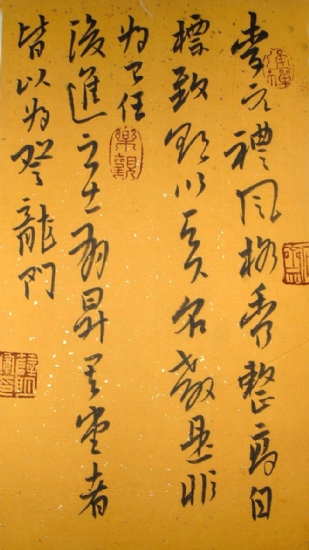 李元禮風格秀整高自
標致欲以天下名教是非
為己任
後進之士有昇其堂者
皆以為登龍門